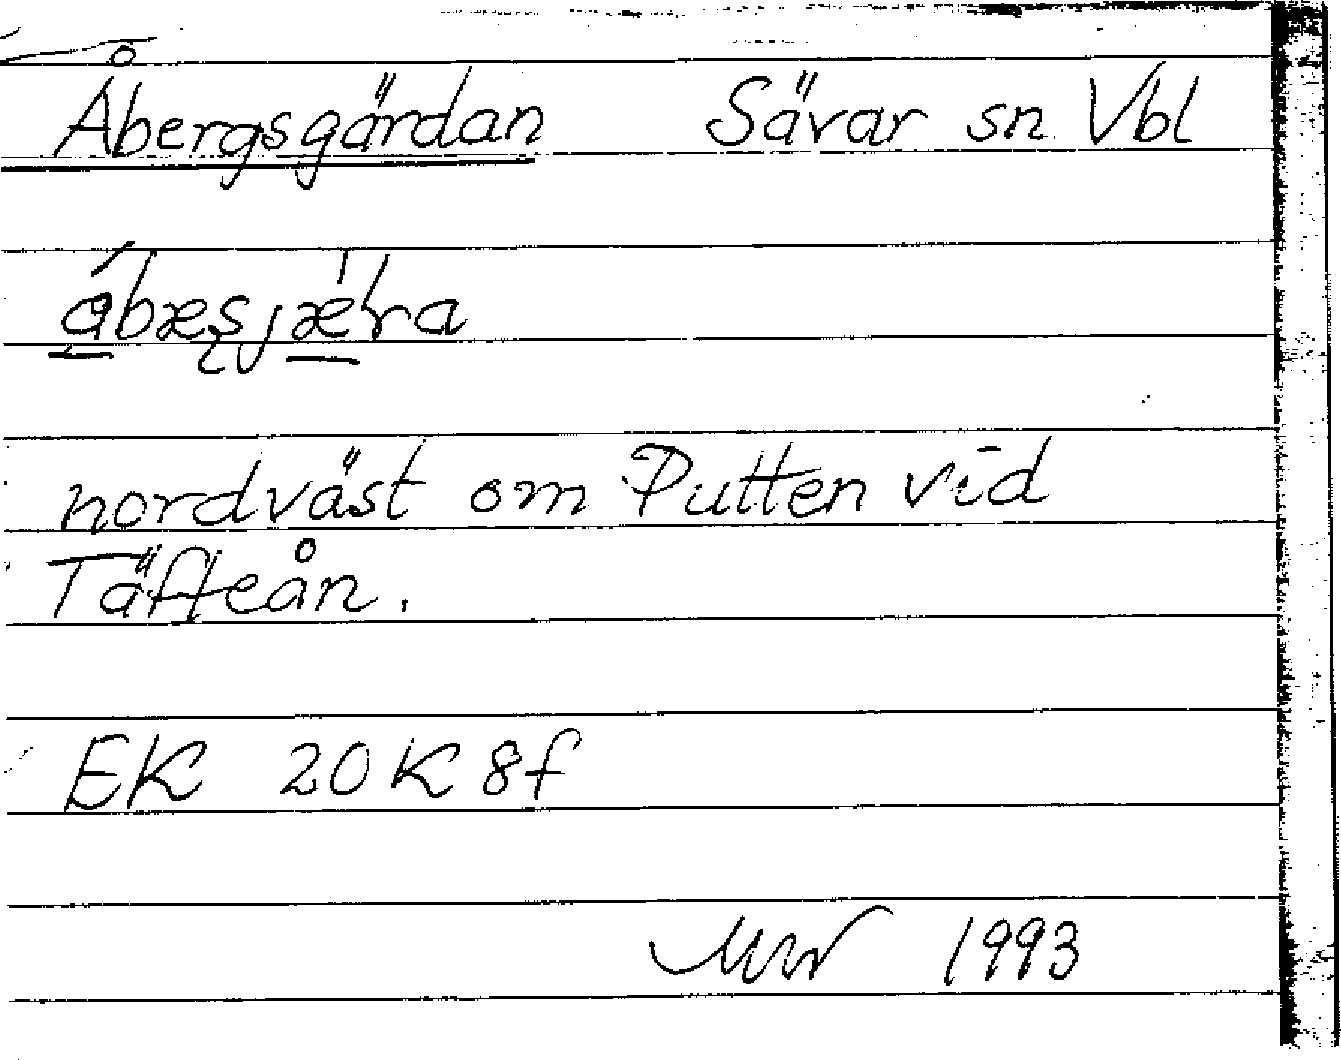 Åbergsgärdan Sävar sn Vbl
nordväst om Putten vid
Täfteån.
EK 20K 8f
1993